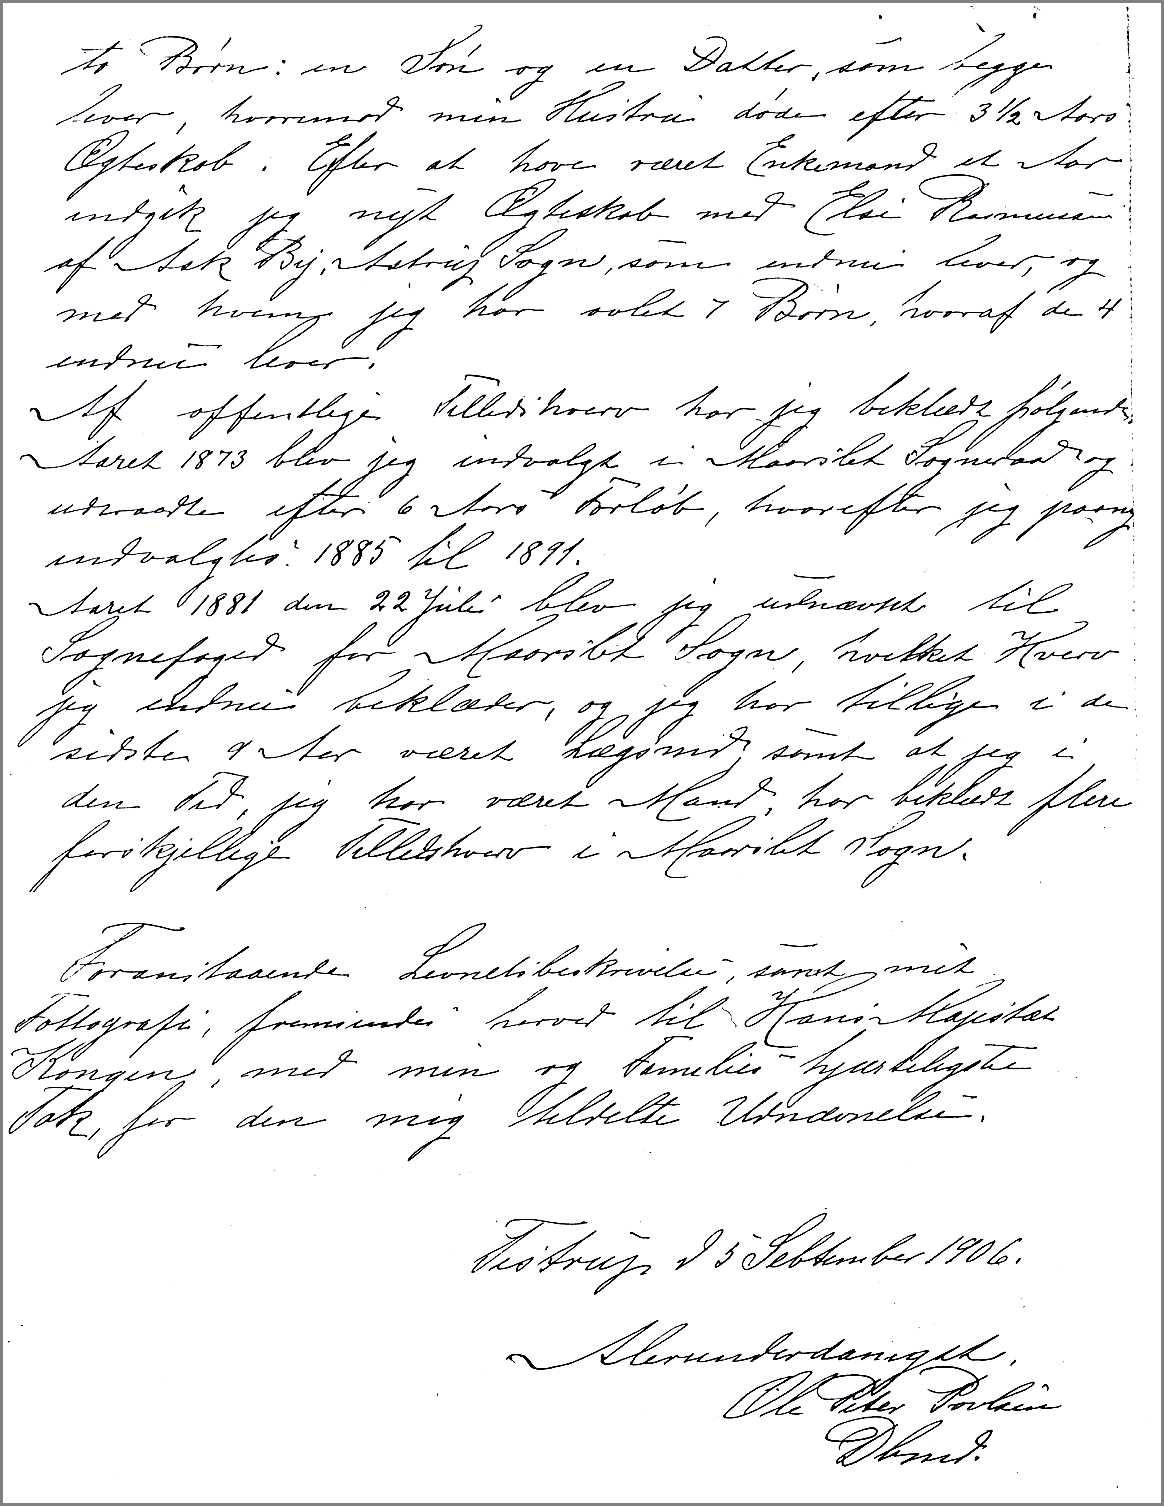 to Børn: en Søn og en Datter, som begge
lever, hvorimod min Hustru døde efter 3 1/2 Aars
Ægteskab. Efter at have været Enkemand et Aar
indgik jeg nyt Ægteskab med Else Rasmussen
af Ask By, Astrup Sogn, som endnu lever, og
med hvem jeg har avlet 7 Børn, hvoraf de 4
endnu lever.
Af offentlige Tillidshverv har jeg beklædt følgende.
Aaret 1873 blev jeg indvalgt i Maarslet Sogneraad og
udtraadte efter 6 Aars Forløb, hvorefter jeg paany
indvalgtes 1885 til 1891.
Aaret 1881 den 22 Juli blev jeg udnævnt til
Sognefoged for Maarslet Sogn, hvilket Hverv
jeg endnu beklæder, og jeg har tillige i de
sidste 9 Aar været Lægsmd, samt at jeg i
den Tid, jeg har været Mand, har beklædt flere
forskjellige Tillidshverv i Maarslet Sogn.
Foranstaaende Levnetsbeskrivelse, samt mit
Fottografi, fremsendes herved til Hans Majestæt
Kongen, med min og Families hjærteligste
Tak, for den mig tildelte Udnævnelse.
Testrup, d 5 Sebtember 1906.
Alerunderdanigst.
Ole Peter Povlsen
Dbmd.